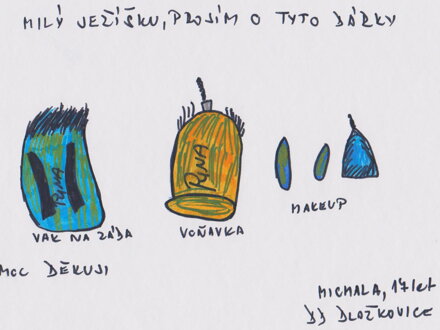 MILÝ JEŽÍŠKU, PROSÍM O TYTO DÁRKY
RINA
RINA
VAK NA ZÁDA
VOŇAVKA
MAKEUP
MOC DĚKUJI
MICHALA, 17 let
DD DLAŽKOVICE